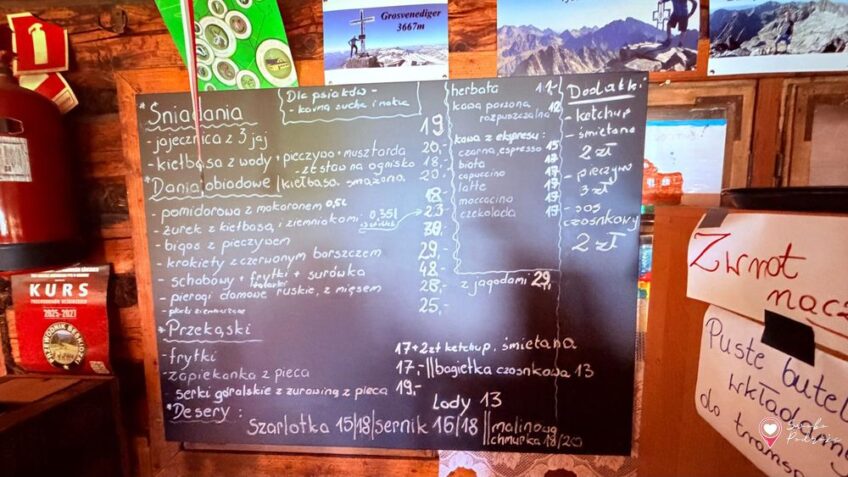 Grosvenediger
3667m
*Śniadania
- jajecznica z 3 jaj 19
- kiełbasa z wody + pieczywo + musztarda 20,-
- zestaw na ognisko 18,-
*Dania obiadowe | kiełbasa smażona 20,-
- pomidorowa z makaronem 0,5L 18,-
- żurek z kiełbasą i ziemniakami 0,35l 23,-
- bigos z pieczywem 30,-
- krokiety z czerwonym barszczem 29,-
- schabowy + frytki + surówka 48,-
- pierogi domowe ruskie, z mięsem 28,-
25,-
z jagodami 29,-
*Przekąski
- frytki 17+2zł ketchup, śmietana
- zapiekanka z pieca 17,- || bagietka czosnkowa 13
- serki góralskie z żurawiną z pieca 19,-
Lody 13
*Desery:
Szarlotka 15/18 | sernik 16/18 || malinowa
chmurka 18/20
Dla psiaków -
- karma sucha i mokra
herbata
kawa parzona 12
rozpuszczalna
kawa z ekspresu:
czarna, espresso 15
biała 17
capuccino 17
latte 17
moccacino 17
czekolada 17
Dodatki
- ketchup
- śmietana
2 zł
- pieczywo
3 zł
- sos
czosnkowy
2 zł
KURS
2025-2027
Zwrot
nacz
Puste butel
wkładamy
do transp